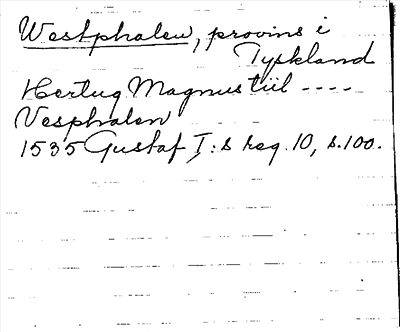 Westphalen, provins i
Tyskland
Hertug Magnus till ----
Vesphalen
1535 Gustaf I:s reg. 10, s. 100.